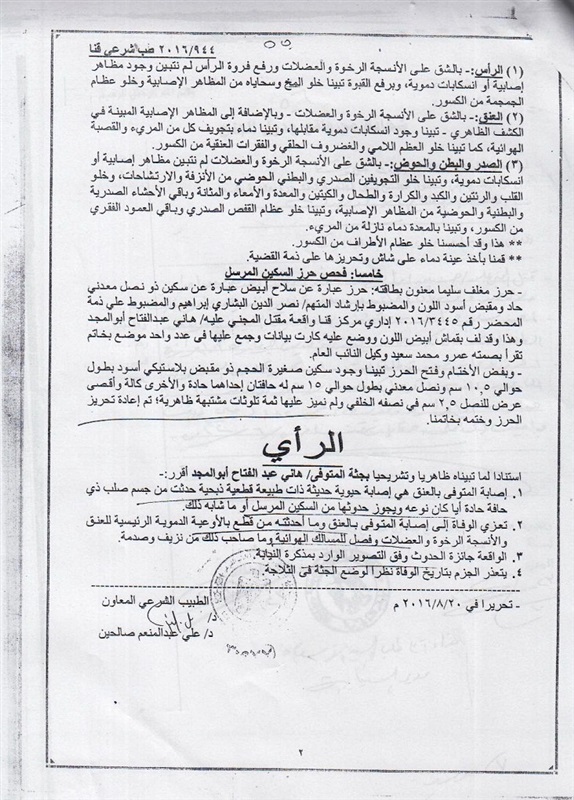 ٢٠١٦/٩٤٤ طب شرعي قنا
(١) الرأس:- بالشق على الأنسجة الرخوة والعضلات ورفع فروة الرأس لم نتبين وجود مظاهر
إصابية أو انسكابات دموية، وبرفع القبوة تبينا خلو المخ وسحاياه من المظاهر الإصابية وخلو عظام
الجمجمة من الكسور.
(٢) العنق:- بالشق على الأنسجة الرخوة والعضلات - وبالإضافة إلى المظاهر الإصابية المبينة في
الكشف الظاهري - تبينا وجود انسكابات دموية مقابلها، وتبينا دماء بتجويف كل من المريء والقصبة
الهوائية، كما تبينا خلو العظم اللامي والغضروف الحلقي والفقرات العنقية من الكسور.
(٣) الصدر والبطن والحوض:- بالشق على الأنسجة الرخوة والعضلات لم نتبين مظاهر إصابية أو
انسكابات دموية، وتبينا خلو التجويفين الصدري والبطني الحوضي من الأنزفة والارتشاحات، وخلو
القلب والرئتين والكبد والكرارة والطحال والكليتين والمعدة والأمعاء والمثانة وباقي الأحشاء الصدرية
والبطنية والحوضية من المظاهر الإصابية، وتبينا خلو عظام القفص الصدري وباقي العمود الفقري
من الكسور، وتبينا بالمعدة دماء نازلة من المريء.
** هذا وقد أحسسنا خلو عظام الأطراف من الكسور.
** قمنا بأخذ عينة دماء على شاش وتحريزها على ذمة القضية.
خامسا: فحص حرز السكين المرسل
- حرز مغلف سليما معنون بطاقته: حرز عبارة عن سلاح أبيض عبارة عن سكين ذو نصل معدني
حاد ومقبض أسود اللون والمضبوط بإرشاد المتهم/ نصر الدين البشاري إبراهيم والمضبوط علي ذمة
المحضر رقم ٢٠١٦/٣٤٤٥ إداري مركز قنا واقعة مقتل المجني عليه/ هاني عبدالفتاح أبوالمجد
وهذا وقد لف بقماش أبيض اللون ووضع عليه كارت بيانات وجمع عليها فى عدد واحد موضع بخاتم
تقرأ بصمته عمرو محمد سعيد وكيل النائب العام.
- وبفض الأختام وفتح الحرز تبينا وجود سكين صغيرة الحجم ذو مقبض بلاستيكي أسود بطول
حوالي ١٠,٥ سم ونصل معدني بطول حوالي ١٥ سم له حافتان إحداهما حادة والأخرى كالة وأقصى
عرض للنصل ٢,٥ سم في نصفه الخلفي ولم نميز عليها ثمة تلوثات مشتبهة ظاهرية؛ تم إعادة تحريز
الحرز وختمه بخاتمنا.
الرأي
استنادا لما تبيناه ظاهريا وتشريحيا بجثة المتوفى/ هاني عبد الفتاح أبوالمجد أقرر:-
١. إصابة المتوفى بالعنق هي إصابة حيوية حديثة ذات طبيعة قطعية ذبحية حدثت من جسم صلب ذي
حافة حادة أيا كان نوعه ويجوز حدوثها من السكين المرسل أو ما شابه ذلك.
٢. تعزي الوفاة إلى إصابة المتوفى بالعنق وما أحدثته من قطع بالأوعية الدموية الرئيسية للعنق
والأنسجة الرخوة والعضلات وفصل للمسالك الهوائية وما صاحب ذلك من نزيف وصدمة.
٣. الواقعة جائزة الحدوث وفق التصوير الوارد بمذكرة النيابة.
٤. يتعذر الجزم بتاريخ الوفاة نظرا لوضع الجثة فى الثلاجة.
- تحريرا في ٢٠١٦/٨/٢٠ م
الطبيب الشرعي المعاون
د/ علي عبدالمنعم صالحين
٢